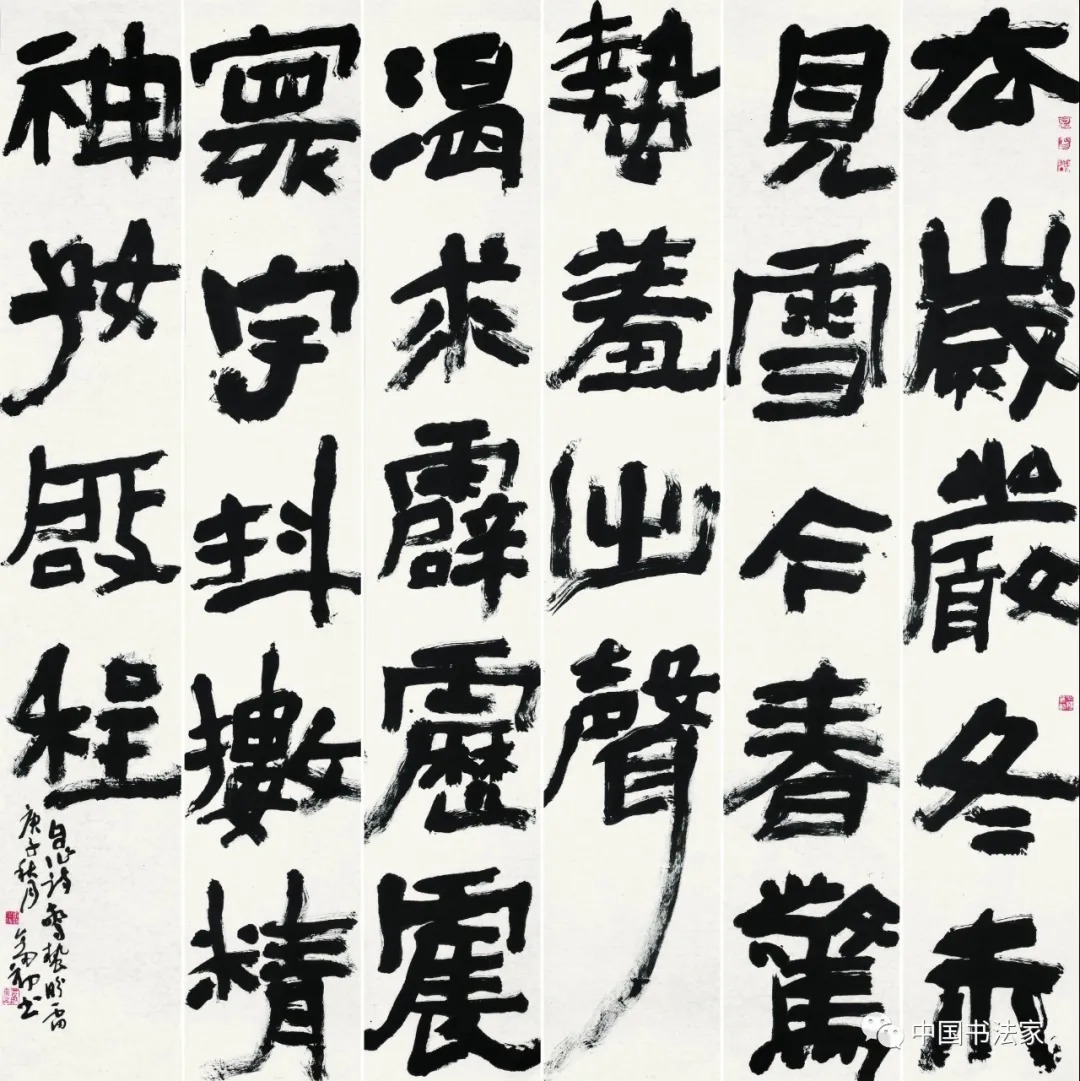 去歲嚴冬未
見雪今春驚
蟄羞出聲
渴求霹靂震
寰宇抖擻精
神好啟程
自作詩驚蟄盼雷
庚子秋月
中国书法家